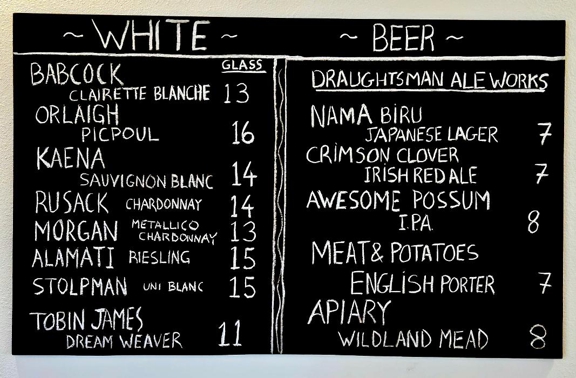 ~ WHITE ~
GLASS
BABCOCK
CLAIRETTE BLANCHE 13
ORLAIGH
PICPOUL 16
KAENA
SAUVIGNON BLANC 14
RUSACK CHARDONNAY 14
MORGAN METALLICO
CHARDONNAY 13
ALAMATI RIESLING 15
STOLPMAN UNI BLANC 15
TOBIN JAMES
DREAM WEAVER 11
~ BEER ~
DRAUGHTSMAN ALE WORKS
NAMA BIRU
JAPANESE LAGER 7
CRIMSON CLOVER
IRISH RED ALE 7
AWESOME POSSUM
I.P.A. 8
MEAT & POTATOES
ENGLISH PORTER 7
APIARY
WILDLAND MEAD 8